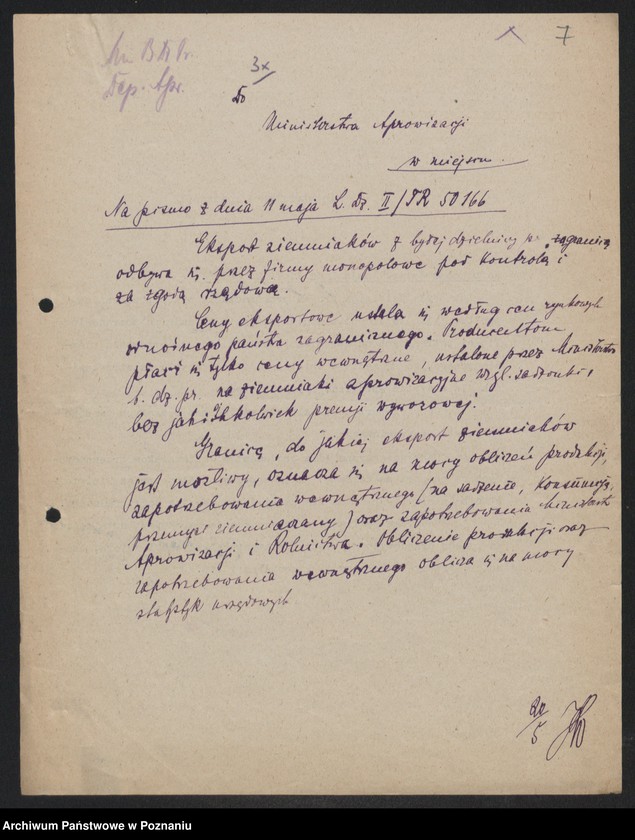 Min B Dz Pr.
Dep. Apr.
3x
7
Do
Ministerstwa Aprowizacji
w miejscu.
Na pismo z dnia 11 maja L. Dz. II/TR 50166
Eksport ziemniaków z byłej dzielnicy pr. zagranicę
odbywa się przez firmy monopolowe pod kontrolą i
za zgodą rządową.
Ceny eksportowe ustala się według cen rynkowych
odnośnego państwa zagranicznego. Producentom
płaci się tylko ceny wewnętrzne, ustalone przez Ministerstwo
b. dz. pr. na ziemniaki aprowizacyjne wzgl. sadzonki,
bez jakiejkolwiek premji wywozowej.
Granicę, do jakiej eksport ziemniaków
jest możliwy, oznacza się na mocy obliczeń produkcji,
zapotrzebowania wewnętrznego (na sadzenie, konsumcję,
przemysł ziemniaczany) oraz zapotrzebowania Ministerstw
Aprowizacji i Rolnictwa. Obliczenie produkcji oraz
zapotrzebowania wewnętrznego oblicza się na mocy
statystyk urzędowych
20/5
Archiwum Państwowe w Poznaniu